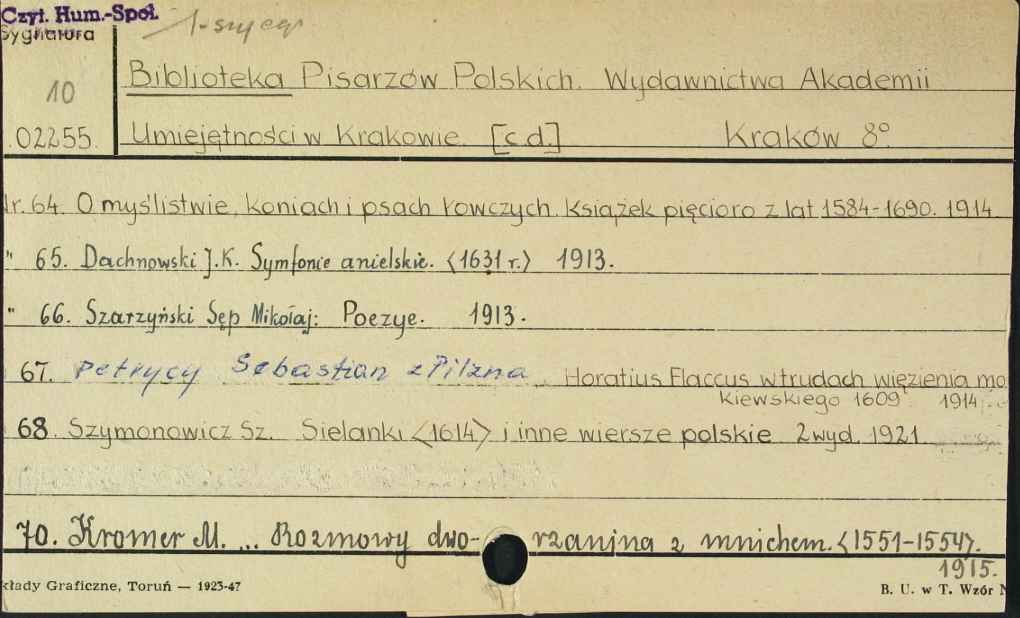 Czyt. Hum.-Społ.
Sygnatura
1-szy egz
10
02255.
Biblioteka Pisarzów Polskich. Wydawnictwa Akademii
Umiejętności w Krakowie. [c.d.] Kraków 8º
Nr. 64. O myślistwie, koniach i psach łowczych. książek pięcioro z lat 1584-1690. 1914
" 65. Dachnowski J.K. Symfonie anielskie. <1631 r.> 1913.
" 66. Szarzyński Sęp Mikołaj: Poezye. 1913.
67. Petrycy Sebastian z Pilzna. Horatius Flaccus w trudach więzienia mo
kiewskiego 1609 1914
68. Szymonowicz Sz. Sielanki <1614> i inne wiersze polskie 2 wyd. 1921
70. Kromer M. ... Rozmowy dwo- rzanina z mnichem. <1551-1554>.
1915.
kłady Graficzne, Toruń — 1923-47
B. U. w T. Wzór N